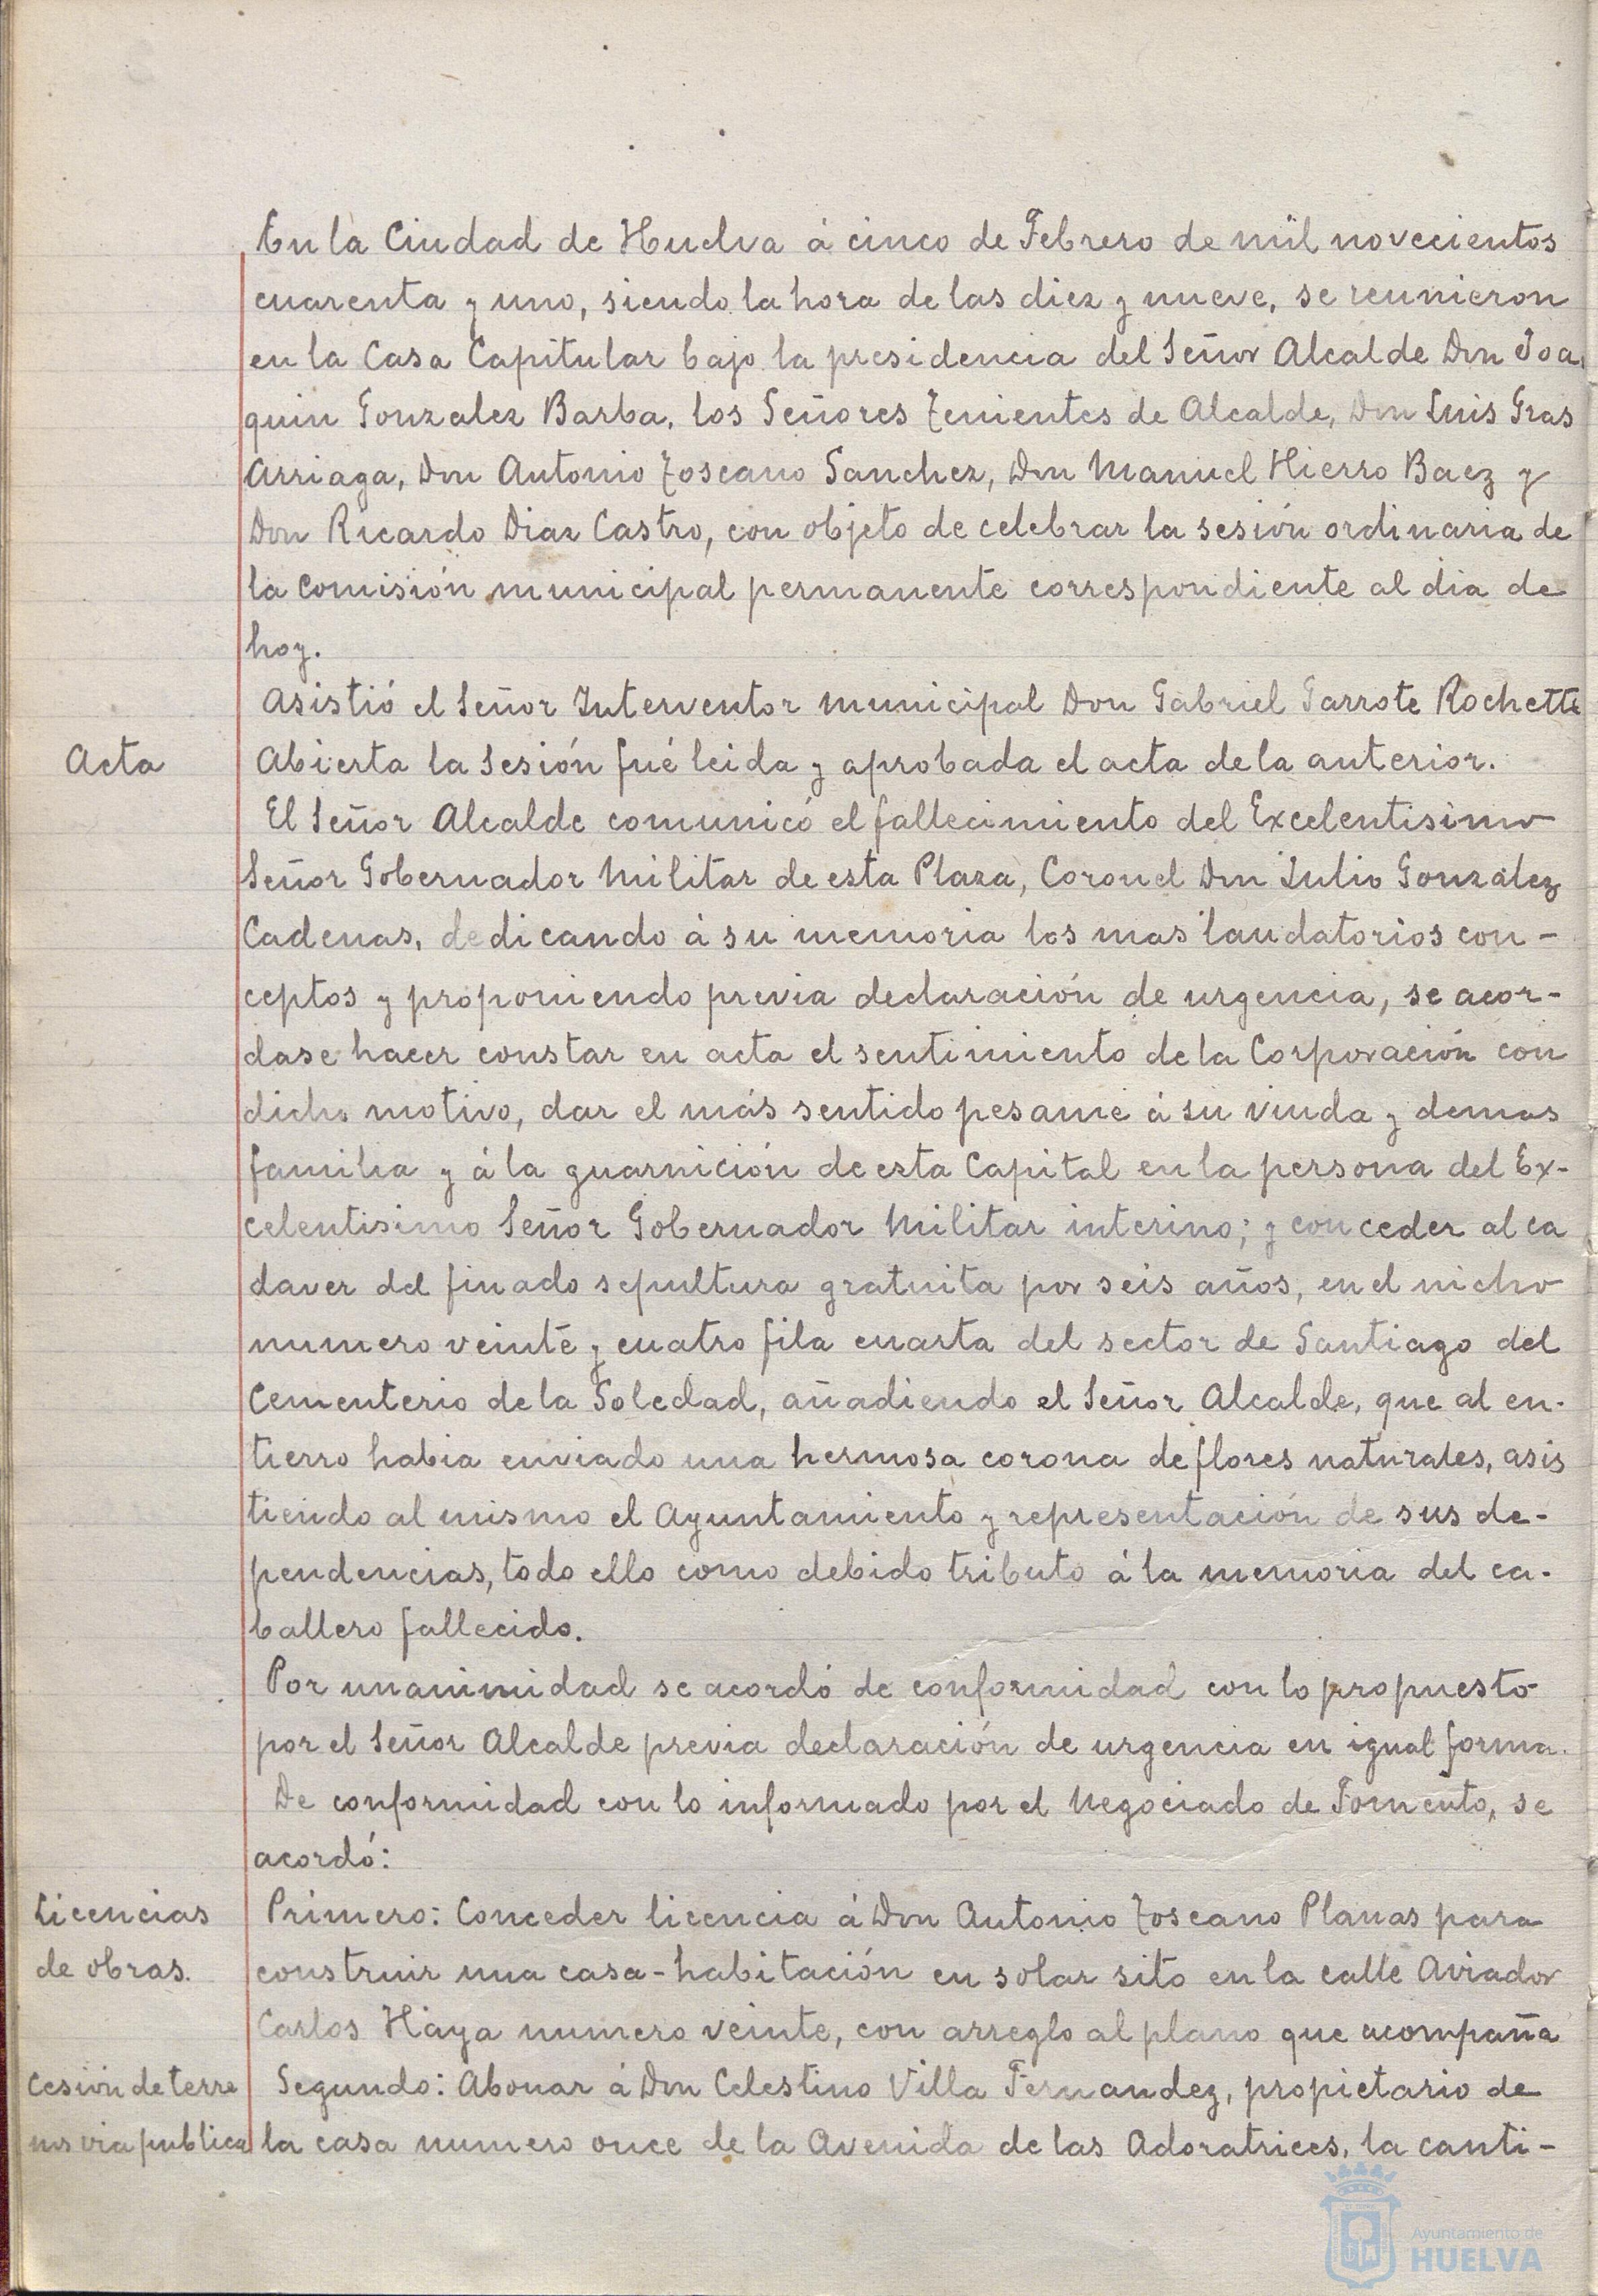 En la Ciudad de Huelva á cinco de Febrero de mil novecientos
cuarenta y uno, siendo la hora de las diez y nueve, se reunieron
en la Casa Capitular bajo la presidencia del Señor Alcalde Don Joa
quin Gonzalez Barba, los Señores Tenientes de Alcalde, Don Luis Gras
Arriaga, Don Antonio Toscano Sanchez, Don Manuel Hierro Baez y
Don Ricardo Diaz Castro, con objeto de celebrar la sesión ordinaria de
la Comisión municipal permanente correspondiente al dia de
hoy.
Asistió el Señor Interventor municipal Don Gabriel Garrote Rochette
Acta
Abierta la Sesión fué leida y aprobada el acta de la anterior.
El Señor Alcalde comunicó el fallecimiento del Excelentisimo
Señor Gobernador Militar de esta Plaza, Coronel Don Julio González
Cadenas, dedicando á su memoria los mas laudatorios con-
ceptos y proponiendo previa declaración de urgencia, se acor-
dase hacer constar en acta el sentimiento de la Corporación con
dicho motivo, dar el más sentido pesame á su viuda y demas
familia y á la guarnición de esta Capital en la persona del Ex-
celentisimo Señor Gobernador Militar interino; y conceder al ca
daver del finado sepultura gratuita por seis años, en el nicho
numero veinte y cuatro fila cuarta del sector de Santiago del
Cementerio de la Soledad, añadiendo el Señor Alcalde, que al en-
tierro habia enviado una hermosa corona de flores naturales, asis
tiendo al mismo el Ayuntamiento y representación de sus de-
pendencias, todo ello como debido tributo á la memoria del ca-
ballero fallecido.
Por unanimidad se acordó de conformidad con lo propuesto
por el Señor Alcalde previa declaración de urgencia en igual forma.
De conformidad con lo informado por el Negociado de Fomento, se
acordó:
Licencias
de obras.
Primero: Conceder licencia á Don Antonio Toscano Planas para
construir una casa-habitación en solar sito en la calle Aviador
Carlos Haya numero veinte, con arreglo al plano que acompaña
Cesión de terre
nos via publica
Segundo: Abonar á Don Celestino Villa Fernandez, propietario de
la casa numero once de la Avenida de las Adoratrices, la canti-
Ayuntamiento de
HUELVA